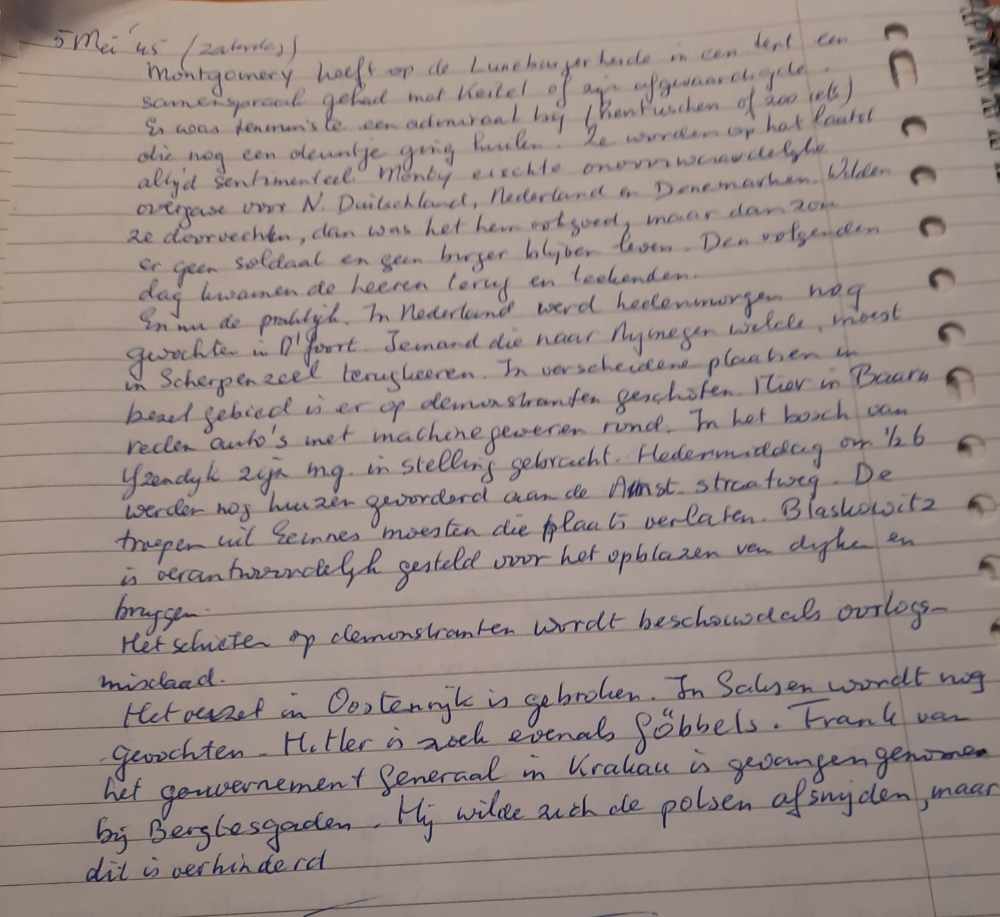 5 Mei '45 (zaterdag)
Montgomery heeft op de Luneburger heide in een tent een
samenspraak gehad met Keitel of zijn afgevaardigde.
Er was tenminste een admiraal bij (Hentuschen of zoo iets)
die nog een deuntje ging huilen. Ze worden op het laatst
altijd sentimenteel. Monty eischte onvoorwaardelijke
overgave voor N. Duitschland, Nederland en Denemarken. Wilden
ze doorvechten, dan was het hem ook goed, maar dan zou
er geen soldaat en geen burger blijven leven. Den volgenden
dag kwamen de heeren terug en teekenden.
En nu de praktijk. In Nederland werd hedenmorgen nog
gevochten in A'foort. Iemand die naar Nijmegen wilde, moest
in Scherpenzeel terugkeeren. In verscheidene plaatsen in
bezet gebied is er op demonstranten geschoten. Hier in Baarn
reden auto's met machinegeweren rond. In het bosch van
IJzendijk zijn mg. in stelling gebracht. Hedenmiddag om 1/2 6
werden nog huizen gevorderd aan de Amst. straatweg. De
troepen uit Eemnes moesten die plaats verlaten. Blaskowitz
is verantwoordelijk gesteld voor het opblazen van dijken en
bruggen.
Het schieten op demonstranten wordt beschouwd als oorlogs-
misdaad.
Het verzet in Oostenrijk is gebroken. In Saksen wordt nog
gevochten. Hitler is zoek evenals Göbbels. Frank van
het gouvernement Generaal in Krakau is gevangen genomen
bij Bergtesgaden. Hij wilde zich de polsen afsnijden, maar
dit is verhinderd